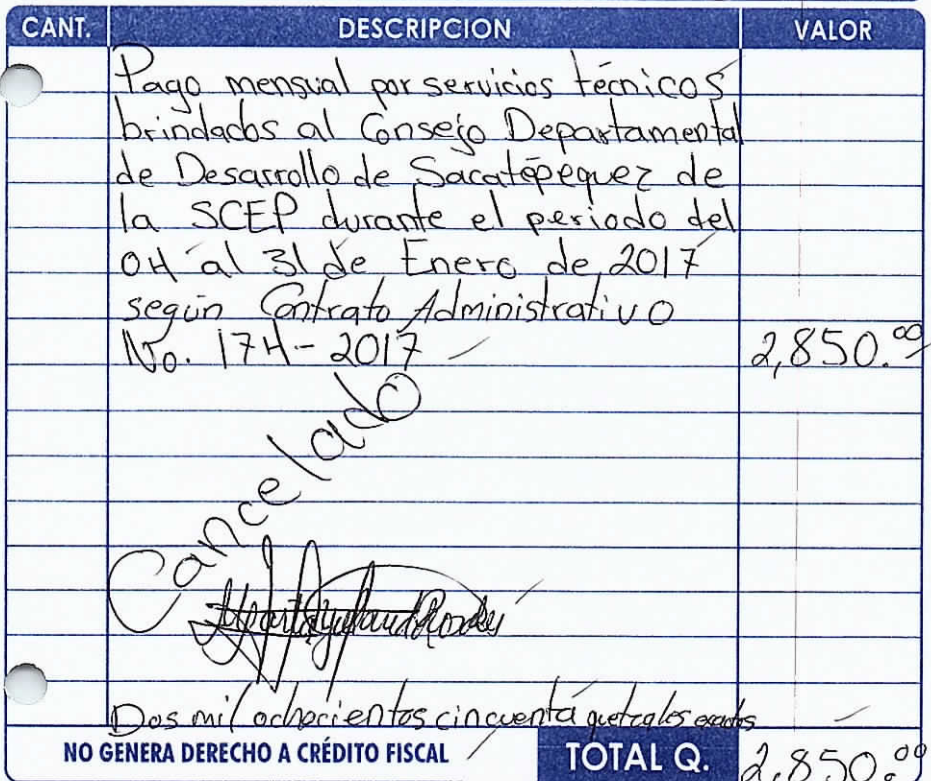 CANT. DESCRIPCION VALOR
Pago mensual por servicios técnicos
brindados al Consejo Departamental
de Desarrollo de Sacatepéquez de
la SCEP durante el periodo del
04 al 31 de Enero de 2017
según Contrato Administrativo
No. 174-2017 2,850.00
Cancelado
Dos mil ochocientos cincuenta quetzales exactos
NO GENERA DERECHO A CRÉDITO FISCAL TOTAL Q. 2,850.00